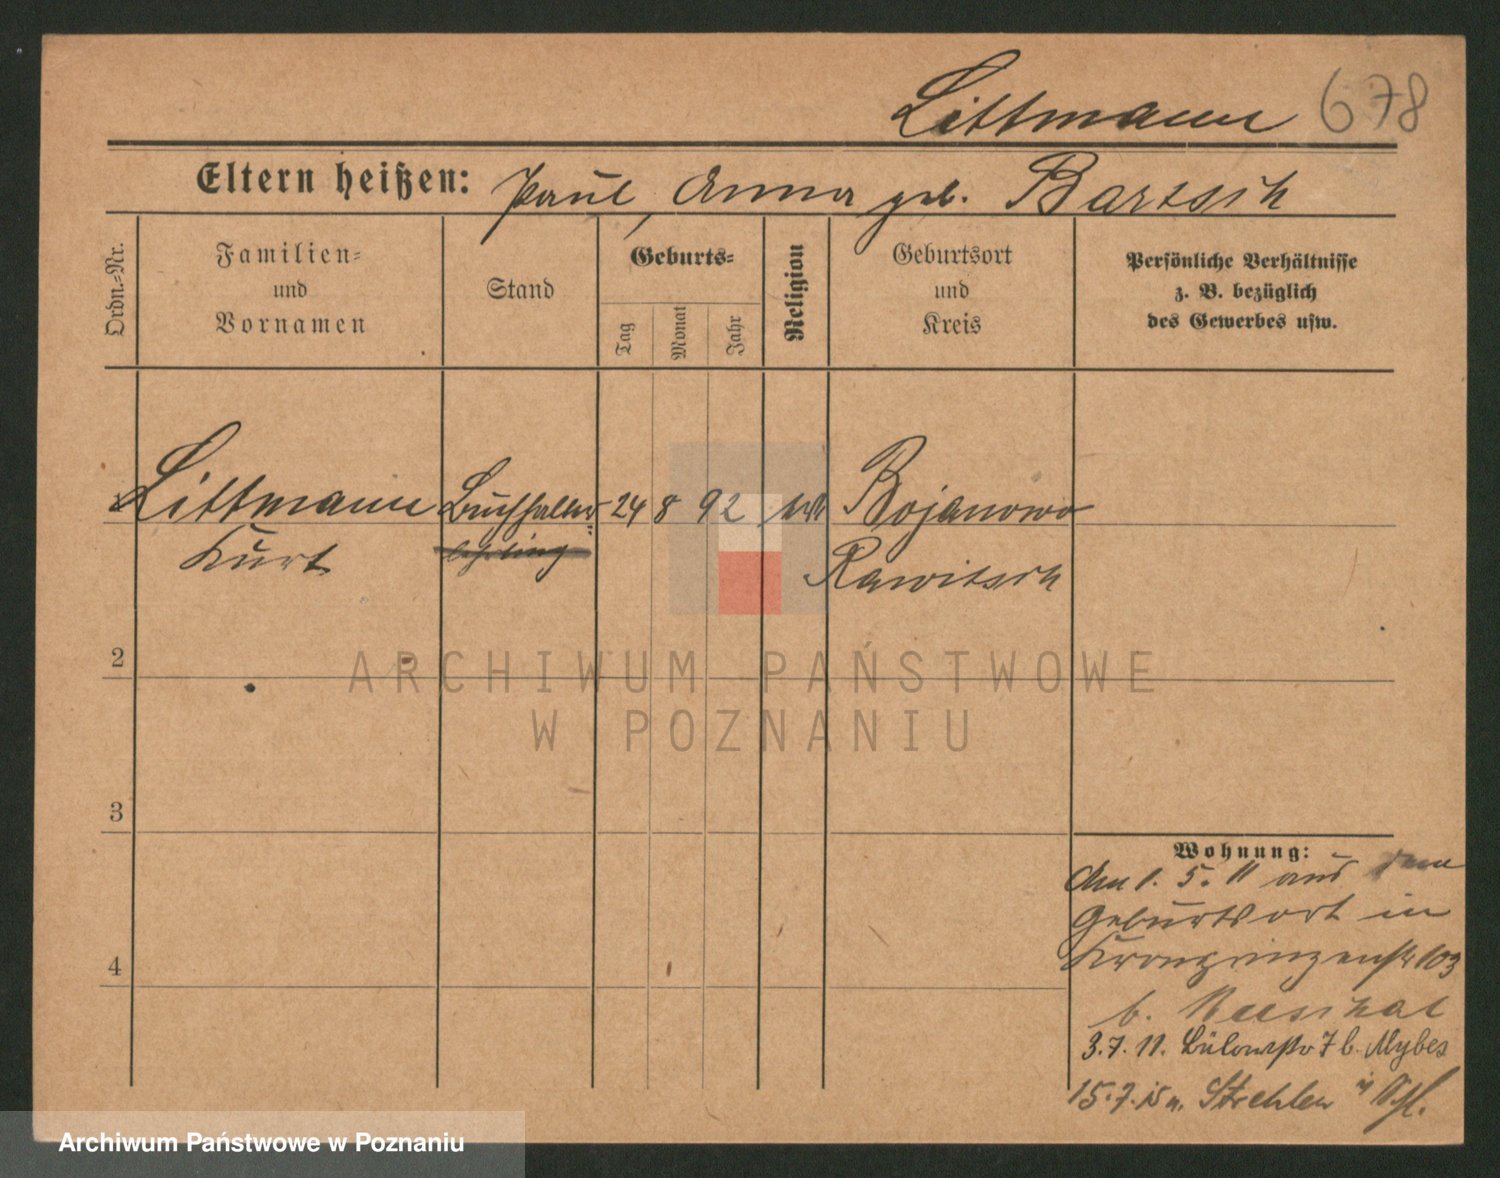 Littmann 678
Eltern heißen: Paul, Anna geb. Bartsch
Ordn.-Nr.
Familien-
und
Vornamen
Stand
Geburts-
Tag
Monat
Jahr
Religion
Geburtsort
und
Kreis
Persönliche Verhältnisse
z. B. bezüglich
des Gewerbes usw.
Littmann Buchhalter 24 8 92 Bojanowo
Kurt lehrling Rawitsch
2
3
4
Wohnung:
Am 1. 5. 11 aus dem
Geburtsort in
Kronprinzenstr 103
b.
3.7.11. Bülowstr 7 b. Mybes
15.7.15 n. Strehlen i/
ARCHIWUM PAŃSTWOWE
W POZNANIU
Archiwum Państwowe w Poznaniu